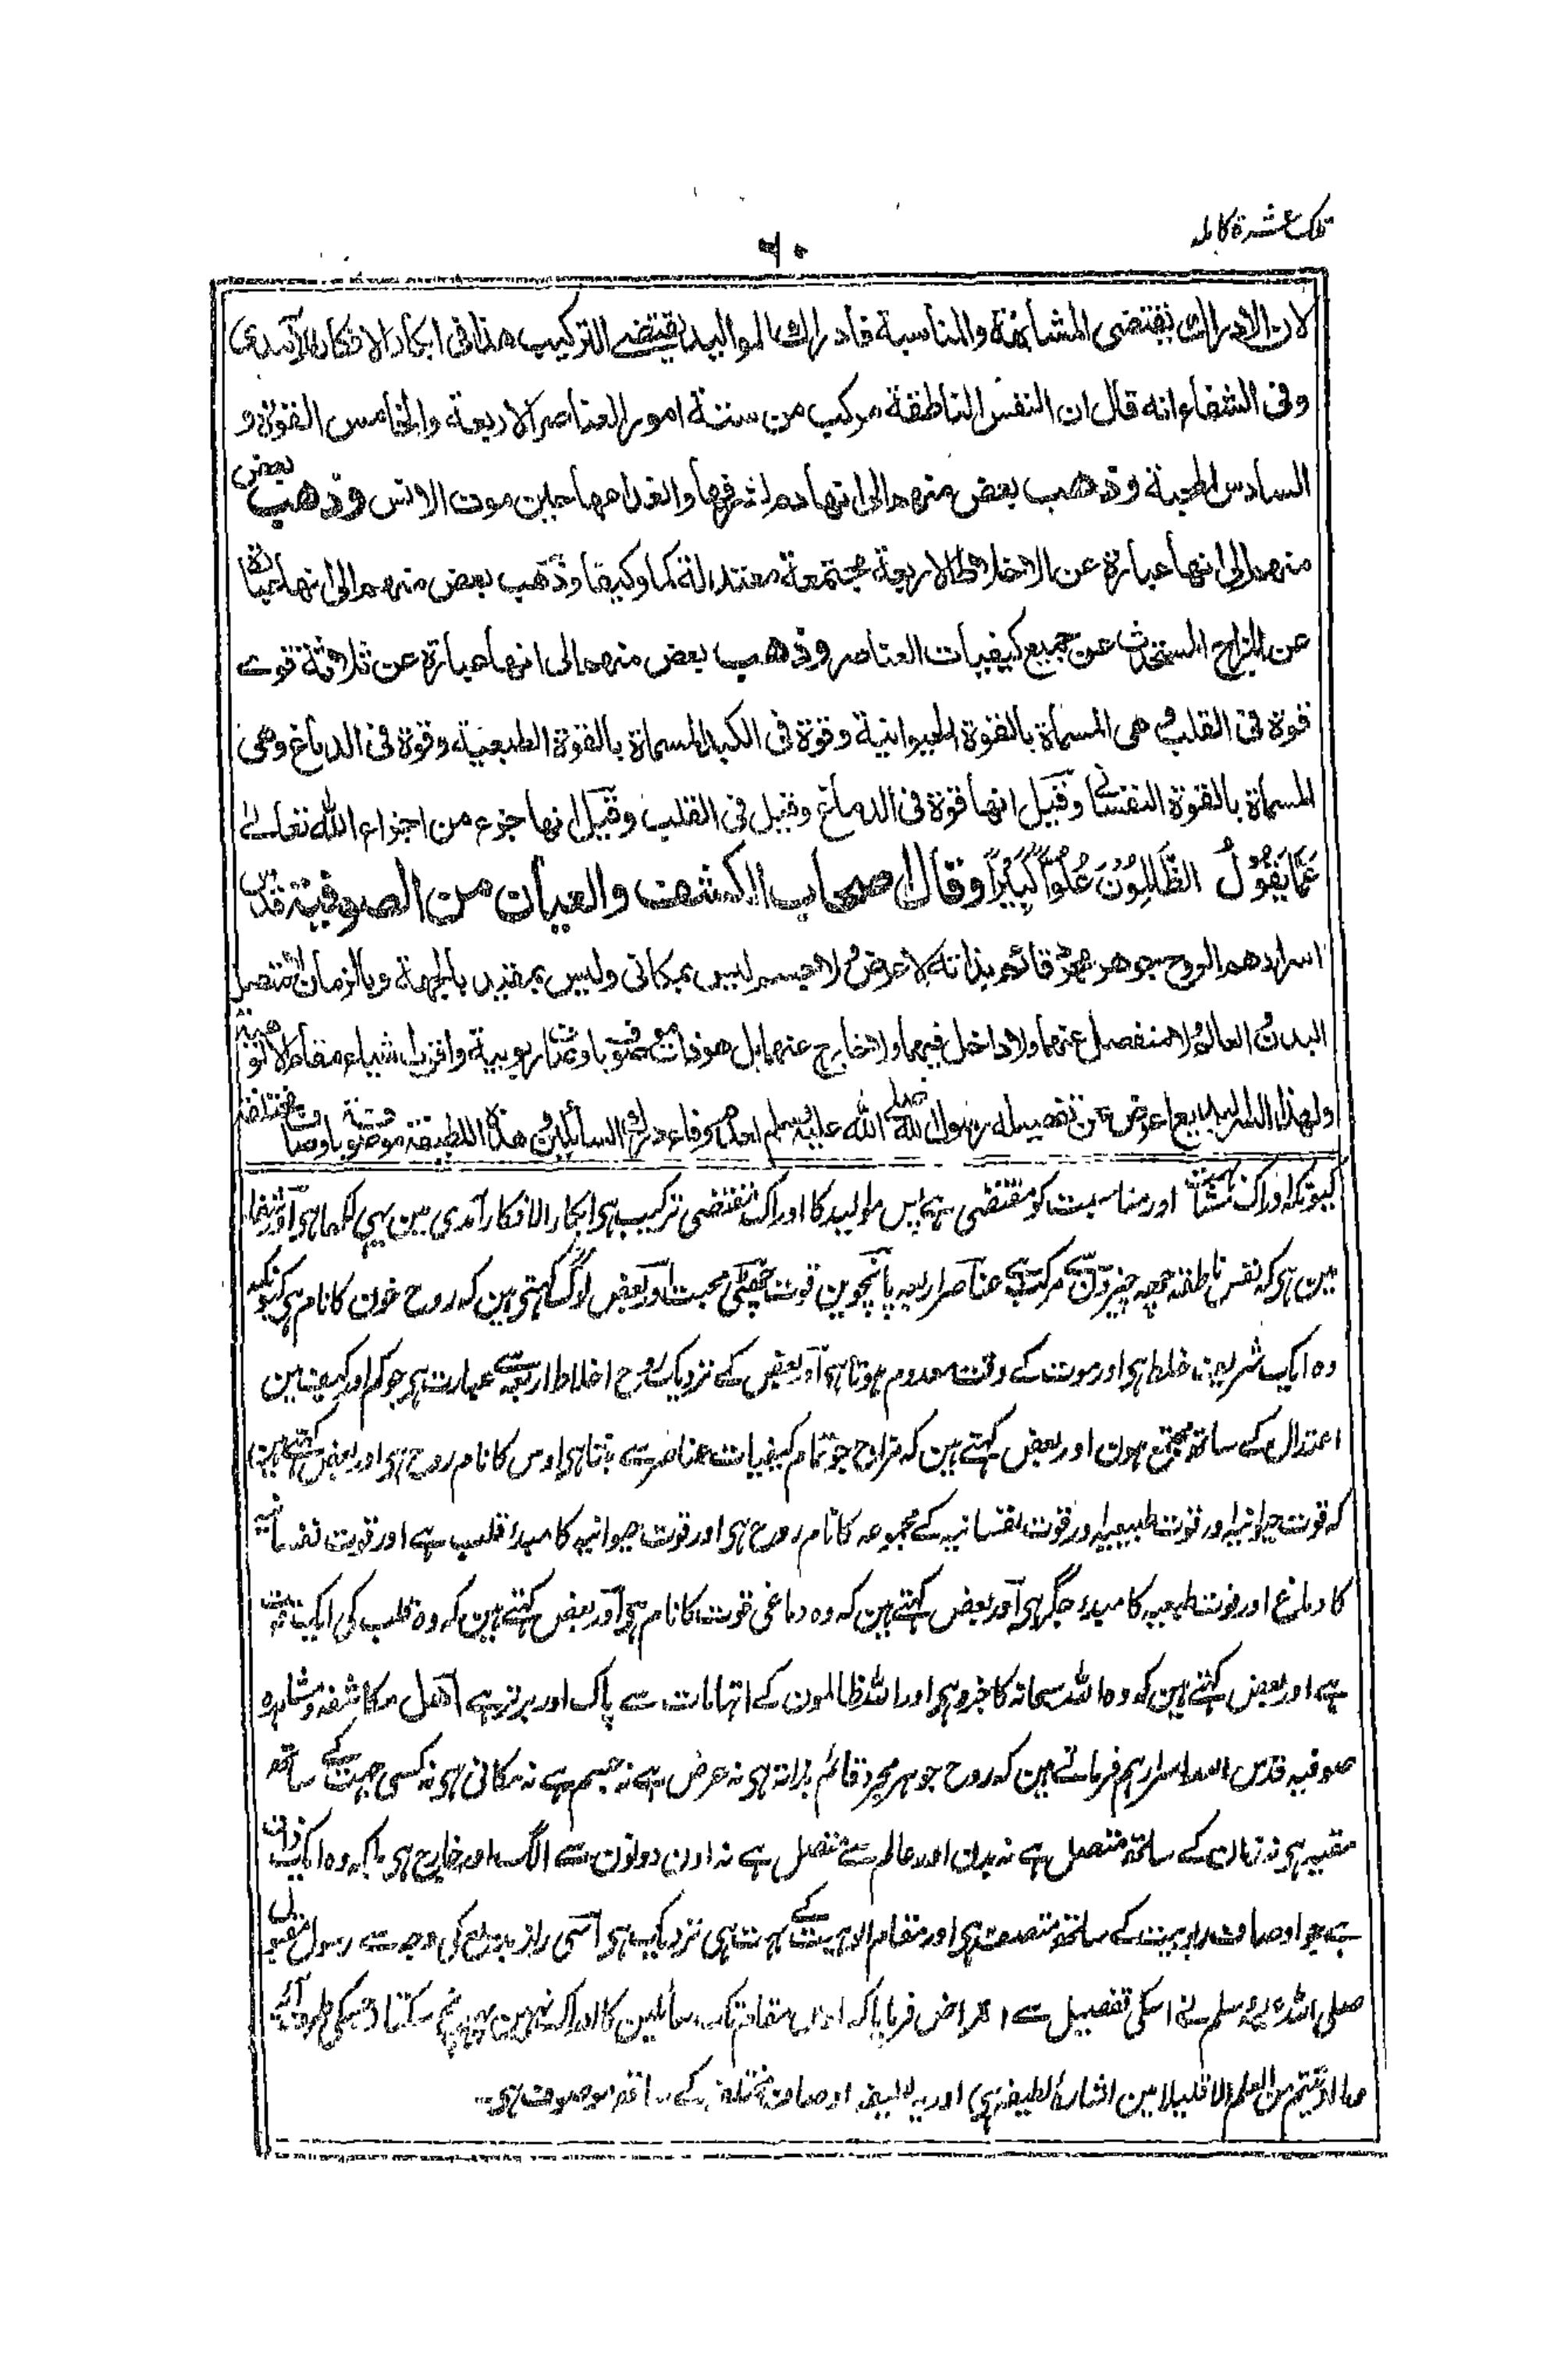 تلک عشرة کاملہ
۶۰
لان الادراك يقتضى المشابهة والمناسبة فادراك المواليد يقتضے التركيب هذا فى ابكار الافكار للآمدى
وفى الشفاء انه قال ان النفس الناطقة مركب من ستة امور العناصر الاربعة والخامس القوة و
السادس المحبة وذهب بعض منهم الى انها دم لشرفها وانعدامها حين موت الانس وذهب بعض
منهم الى انها عبارة عن الاخلاط الاربعة مجتمعة معتدلة كما وكيفا وذهب بعض منهم الى انها عبارة
عن المزاج المستحدث عن جميع كيفيات العناصر وذهب بعض منهم الى انها عبارة عن ثلاثة قوے
قوة فى القلب و هى المسماة بالقوة الحيوانية وقوة فى الكبد المسماة بالقوة الطبعية وقوة فى الدماغ وهى
المسماة بالقوة النفسانے وقيل انها قوة فى الدماغ وقيل فى القلب وقيل انها جزء من اجزاء الله تعالےٰ
عَمَّا يَقُوْلُ الظَّالِمُوْنَ عُلُوًّا كَبِيْرًا وقال اصحاب الكشف والعيان من الصوفية قدس
اسرارهم الروح جوهر مجرد قائم بذاته لا عرض لا جسم ليس بمكانى وليس بمقيد بالجهة وبالزمان لا متصل
البدن العالم لا منفصل عنهما ولا داخل فيهما ولا خارج عنهما بل هو ذات موصوف باوصاف ربوبية واقرب شياء مقاما لا
ولهذا السر البديع اعرض عن تفصيله رسول الله صلے الله عليه وسلم السائلين هذه اللطيفة موصوفة باوصاف مختلفة
کیونکہ ادراک مشابہت اور مناسبت کو مقتضی ہے پس موالید کا ادراک مقتضی ترکیب ہی ابکار الافکار آمدی مین یہی لکھا ہی اور شفا
مین ہی کہ نفس ناطقہ چھہ چیزون سے مرکب ہے عناصر اربعہ پانچوین قوت چھٹی محبت اور بعض لوگ کہتی ہین کہ روح خون کا نام ہی کیونکہ
وہ ایک شریف خلط ہی اور موت کے وقت معدوم ہوتا ہی اور بعض کے نزدیک روح اخلاط اربعہ سے عبارت ہی جو کم اور کیف مین
اعتدال کے ساتھ مجتمع ہون اور بعض کہتے ہین کہ مزاج جو تمام کیفیات عناصر سے بنتا ہی اوس کا نام روح ہی اور بعض کہتے ہین
کہ قوت حیوانیہ اور قوت طبیعیہ اور قوت نفسانیہ کے مجموعہ کا نام روح ہی اور قوت حیوانیہ کا مبدء قلب ہے اور قوت نفسانیہ
کا دماغ اور قوت طبیعیہ کا مبدء جگر ہی اور بعض کہتے ہین کہ وہ دماغی قوت کا نام ہی اور بعض کہتے ہین کہ وہ قلب کی ایک قوت
ہے اور بعض کہتے ہین کہ وہ اللہ سبحانہ کا جزو ہی اور اللہ ظالمون کے اتہامات سے پاک اور برتر ہے اہل مکاشفہ و مشاہدہ
صوفیہ قدس اللہ اسرارہم فرماتے ہین کہ روح جوہر مجرد قائم بذاتہ ہی نہ عرض ہے نہ جسم ہے نہ مکانی ہی نہ کسی جہت کے ساتھ
مقید ہی نہ زمان کے ساتھ متصل ہے نہ بدن اور عالم سے متصل ہے نہ اون دونون سے الگ اور خارج ہی بلکہ وہ ایک ذات
ہے جو اوصاف ربوبیت کے ساتھ متصف ہی اور مقام الوہیت کے بہت ہی نزدیک ہی اسی راز بدیع کی وجہ سے رسول مقبول
صلی اللہ علیہ وسلم نے اسکی تفصیل سے اعراض فرمایا کہ اس مقام تک سائلین کا ادراک نہین پہونچ سکتا جسکی طرف آیہ
وما اوتیتم من العلم الا قلیلا مین اشارۂ لطیفہ ہی اور یہ لطیفہ اوصاف مختلفہ کے ساتھ موصوف ہی۔